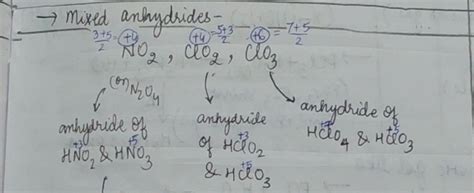 → Mixed anhydrides -
3+5/2 = +4 +4 = 5+3/2 +6 = 7+5/2
NO2, ClO2, ClO3
(or) N2O4
anhydride of
+3 +5
HNO2 & HNO3
anhydride
+3
of HClO2
+5
& HClO3
anhydride of
+7 +5
HClO4 & HClO3